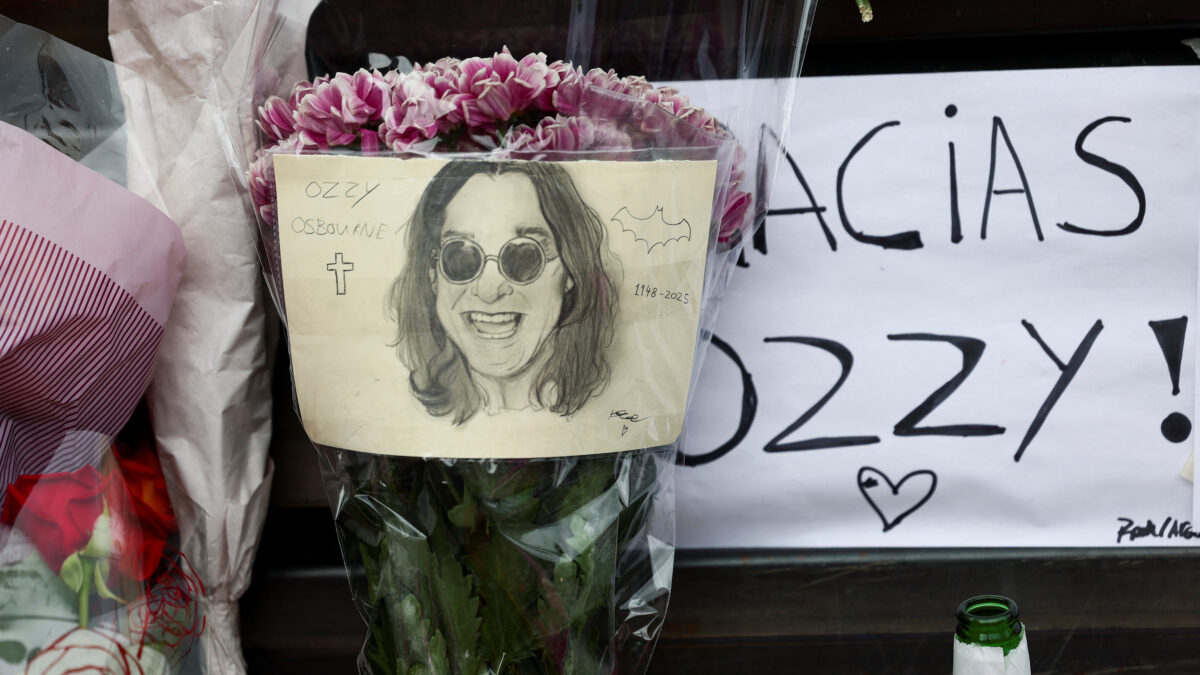 OZZY
OSBOURNE
1948-2025
ACiAS
OZZY!